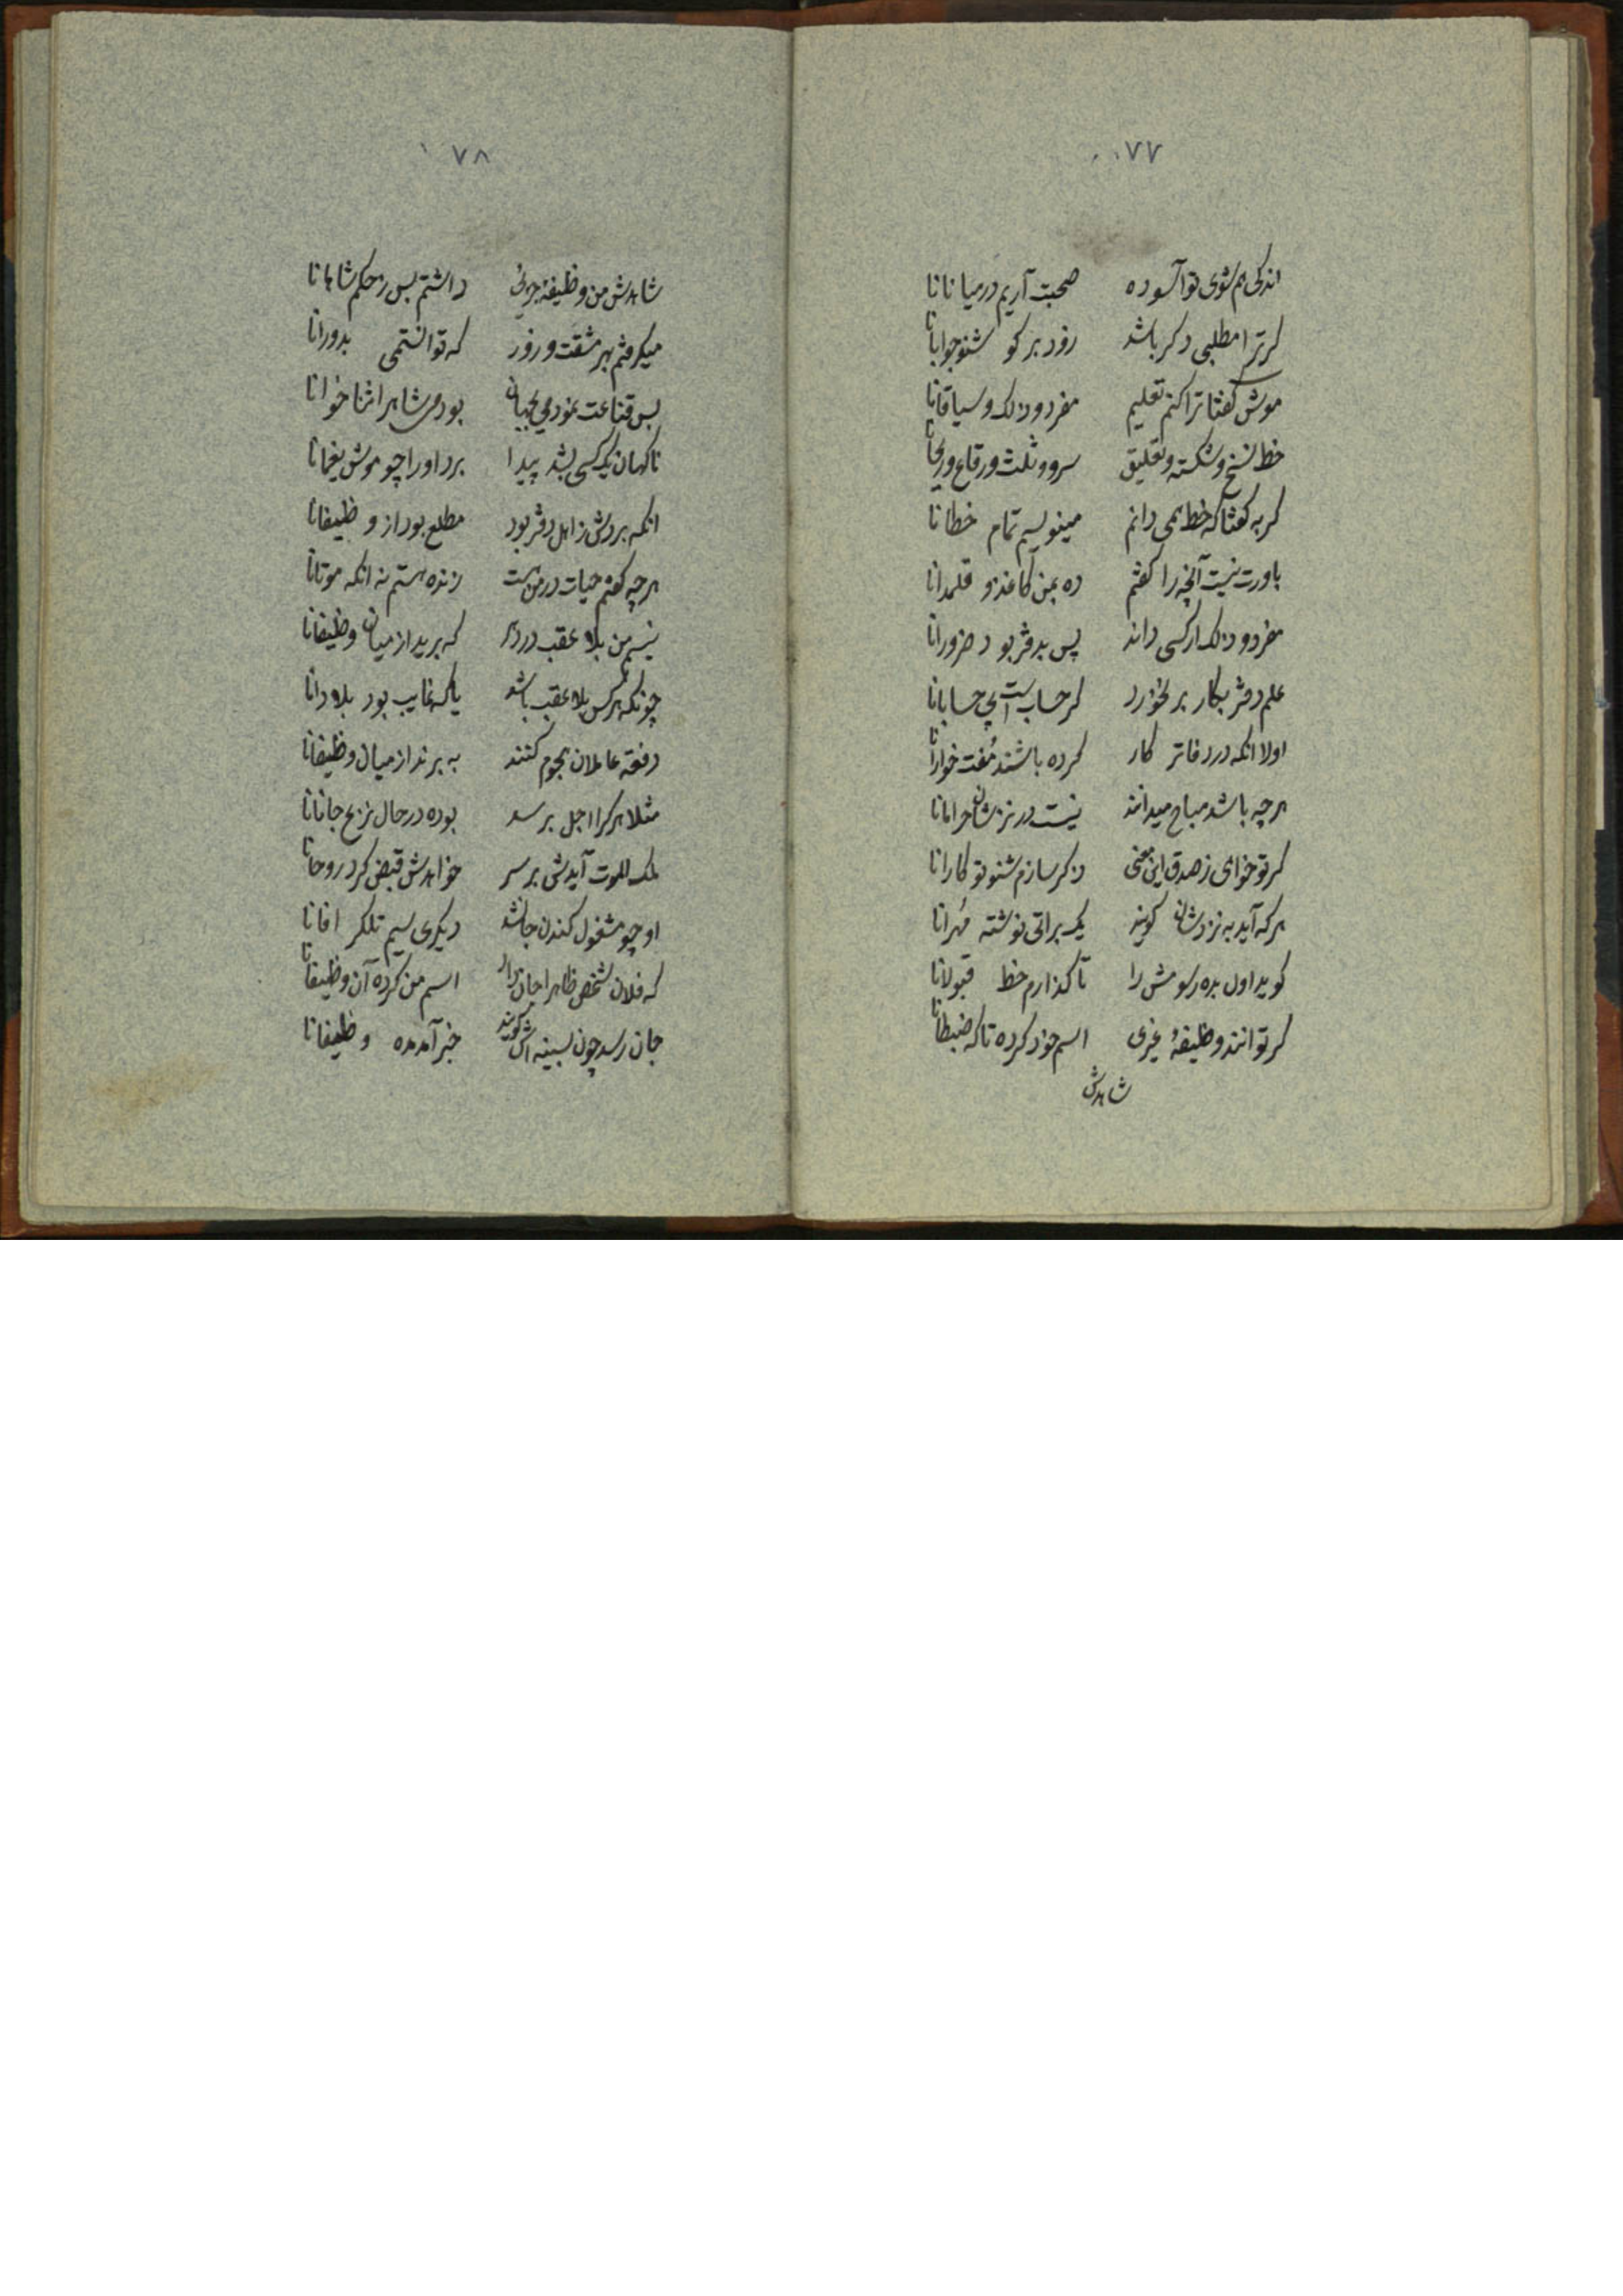 ۷۷
اندکی هم شوی تو آسوده صحبت آریم در میانانا
کر ترا مطلبی دکر باشد زود بر کو شنو جوابانا
موش کفتا ترا کنم تعلیم مفرد و ذلک و سیاقانا
خط نسخ و شکسته و تعلیق سرو و ثلث و رقاع و ریحانا
کربه کفتا که خط نمی دانم مینویسم تمام خطانا
باورت نیست آنچه را کفتم ده بمن کاغذ و قلمدانا
مفرد و ذلک ار کسی داند پس بدفتر بود ضرورانا
علم دفتر بکار بر نخورد کر حساب است بی حسابانا
اولا انکه در دفاتر کار کرده باشند مُفت خوارانا
هرچه باشد مباح میدانند نیست در نزدشان حرامانا
کر تو خواهی ز صدق این معنی ذکر سازم شنو تو کارانا
هر که آید به نزدشان کویند یک براتی نوشته مُهرانا
کوید اول بده رسومش را تا کذارم خط قبولانا
کر توانند وظیفهٔ غیری اسم خود کرده تا که ضبطانا
شاهدش
۷۸
شاهدش من وظیفهٔ جزئی داشتم بس ز حکم شاهانا
میکرفتم بهر مشقت و زور که توانستمی بدورانا
بس قناعت نمودمی بجهان بودمی شاهرا ثنا خوانا
ناکهان یک کسی بشد پیدا برد او را چو موش یغمانا
انکه بردش ز اهل دفتر بود مطلع بود از وظیفانا
هر چه کفتم حیات در من هست زنده هستم نه انکه موتانا
نیستم من بلا عقب در دهر که برید از میان وظیفانا
چونکه هر کس بلا عقب باشد یا که غایب بود بلادانا
دفعة عاملان هجوم کنند به برند از میان وظیفانا
مثلا هر کرا اجل برسد بوده در حال نزع جانانا
ملک الموت آیدش بر سر خواهدش قبض کرد روحانا
او چو مشغول کندن جانشد دیکری سیم تلکر افانا
که فلان شخص ظاهرا جان داد اسم من کرده آن وظیفانا
جان رسد چون بسینه اش کویند خبر آمده وظیفانا